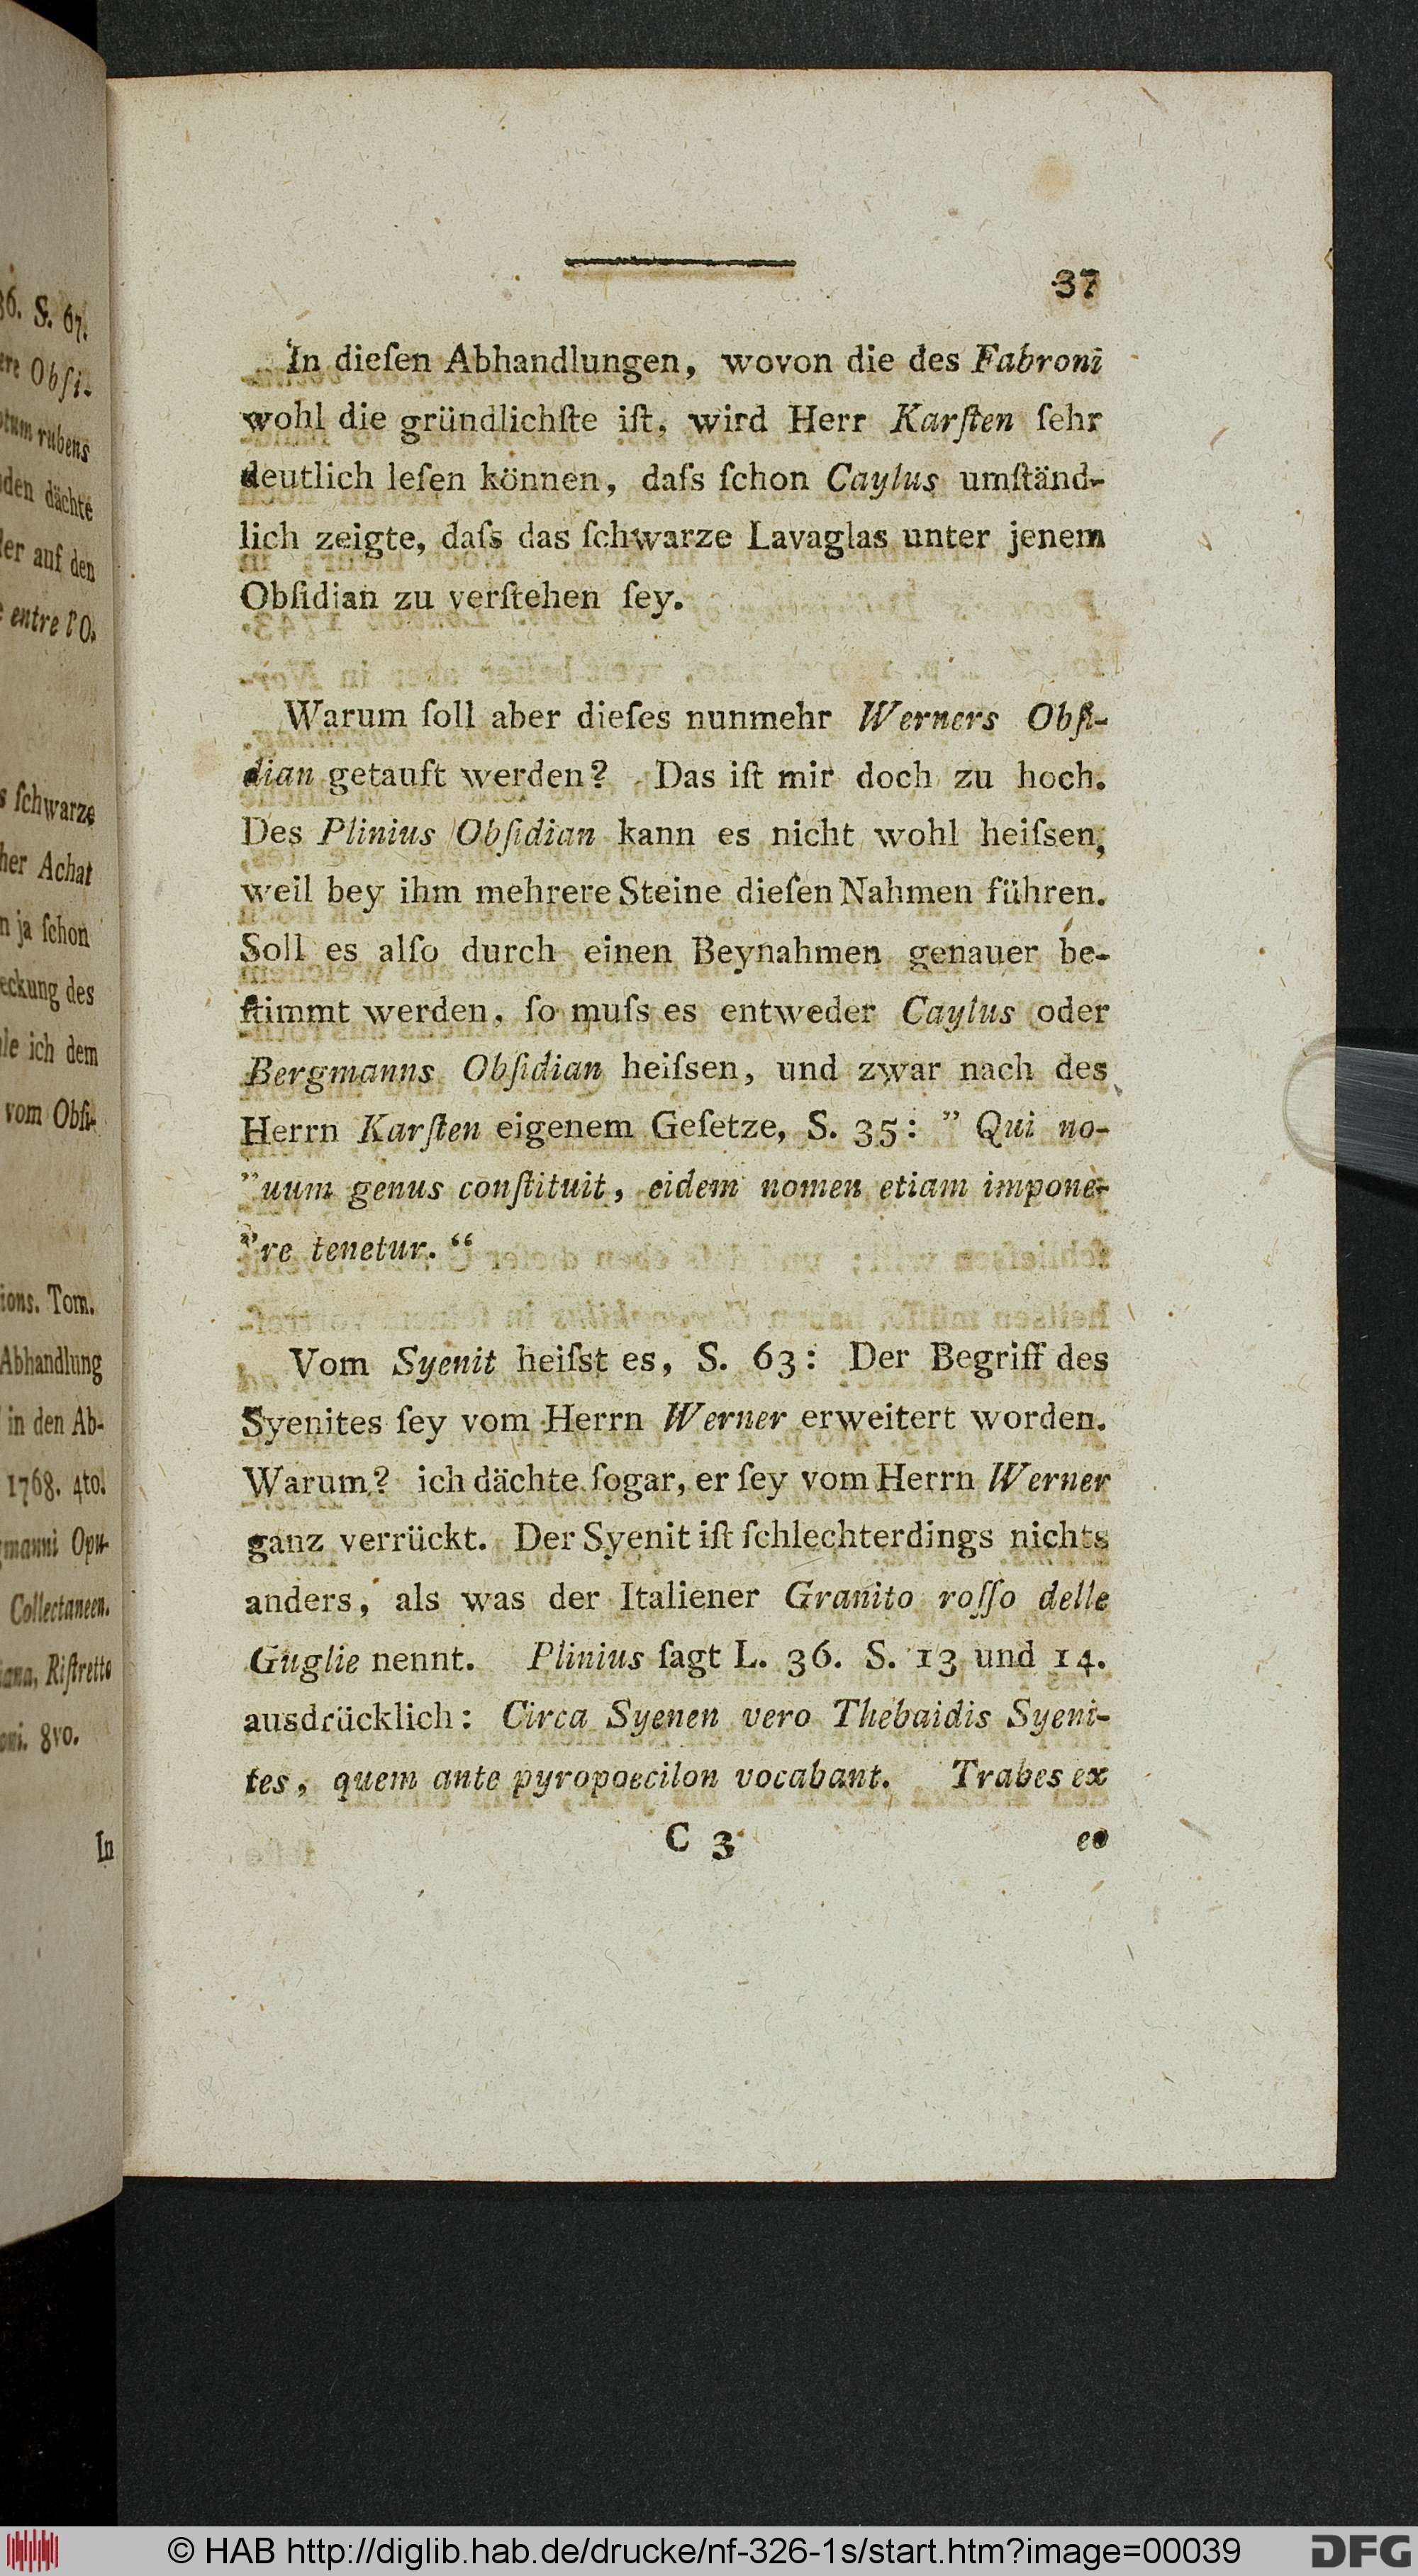 36. S. 67.
ere Obſi-
otum rubens
den dächte
der auf den
entre l'O.
s ſchwarze
her Achat
n ja ſchon
eckung des
le ich dem
vom Obſi-
ions. Tom.
Abhandlung
in den Ab-
1768. 4to.
manni Opu-
Collectaneen.
iana, Riſtretto
oni. 8vo.
In
37
In dieſen Abhandlungen, wovon die des Fabroni
wohl die gründlichſte iſt, wird Herr Karſten ſehr
deutlich leſen können, daſs ſchon Caylus umſtänd-
lich zeigte, daſs das ſchwarze Lavaglas unter jenem
Obſidian zu verſtehen ſey.
Warum ſoll aber dieſes nunmehr Werners Obſi-
dian getauft werden? Das iſt mir doch zu hoch.
Des Plinius Obſidian kann es nicht wohl heiſsen,
weil bey ihm mehrere Steine dieſen Nahmen führen.
Soll es alſo durch einen Beynahmen genauer be-
ſtimmt werden, ſo muſs es entweder Caylus oder
Bergmanns Obſidian heiſsen, und zwar nach des
Herrn Karſten eigenem Geſetze, S. 35: ” Qui no-
”uum genus conſtituit, eidem nomen etiam impone-
”re tenetur. “
Vom Syenit heiſst es, S. 63: Der Begriff des
Syenites ſey vom Herrn Werner erweitert worden.
Warum? ich dächte ſogar, er ſey vom Herrn Werner
ganz verrückt. Der Syenit iſt ſchlechterdings nichts
anders, als was der Italiener Granito roſſo delle
Guglie nennt. Plinius ſagt L. 36. S. 13 und 14.
ausdrücklich: Circa Syenen vero Thebaidis Syeni-
tes, quem ante pyropoecilon vocabant. Trabes ex
C 3 eo
© HAB http://diglib.hab.de/drucke/nf-326-1s/start.htm?image=00039
DFG